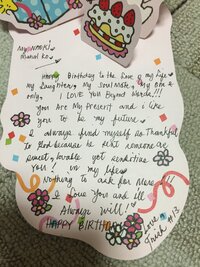 Happy Birthday to the love of my life
my Laughter, my Soul Mate, my one &
only, I LOVE YOU Beyond Words!!!
you Are My Present and i like
you to be my future.
I always find myself so Thankful
to God because he sent someone as
sweet, lovable yet sensitive as
you! in my life
Nothing to ask for More!!!
I Love You and ill
Always will!
HAPPY BIRTHDAY
Love
Faith #13